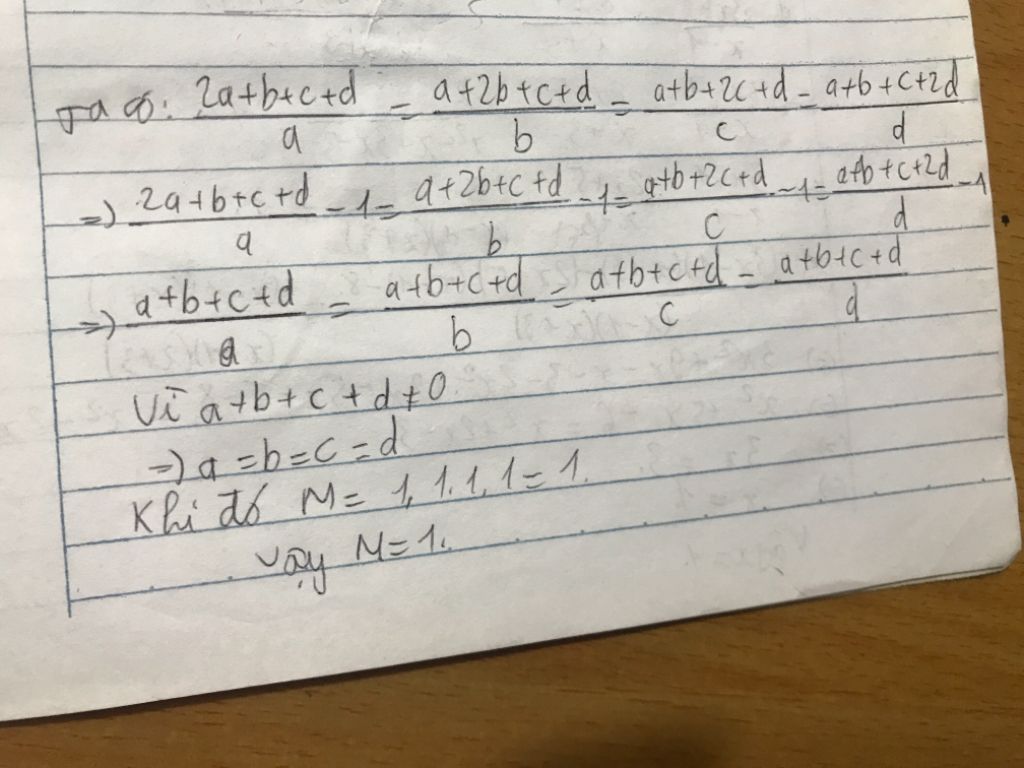 Ta có: (2a+b+c+d)/a = (a+2b+c+d)/b = (a+b+2c+d)/c = (a+b+c+2d)/d
=> (2a+b+c+d)/a - 1 = (a+2b+c+d)/b - 1 = (a+b+2c+d)/c - 1 = (a+b+c+2d)/d - 1
=> (a+b+c+d)/a = (a+b+c+d)/b = (a+b+c+d)/c = (a+b+c+d)/d
Vì a+b+c+d≠0.
=> a=b=c=d
Khi đó M= 1.1.1.1=1.
Vậy M=1.